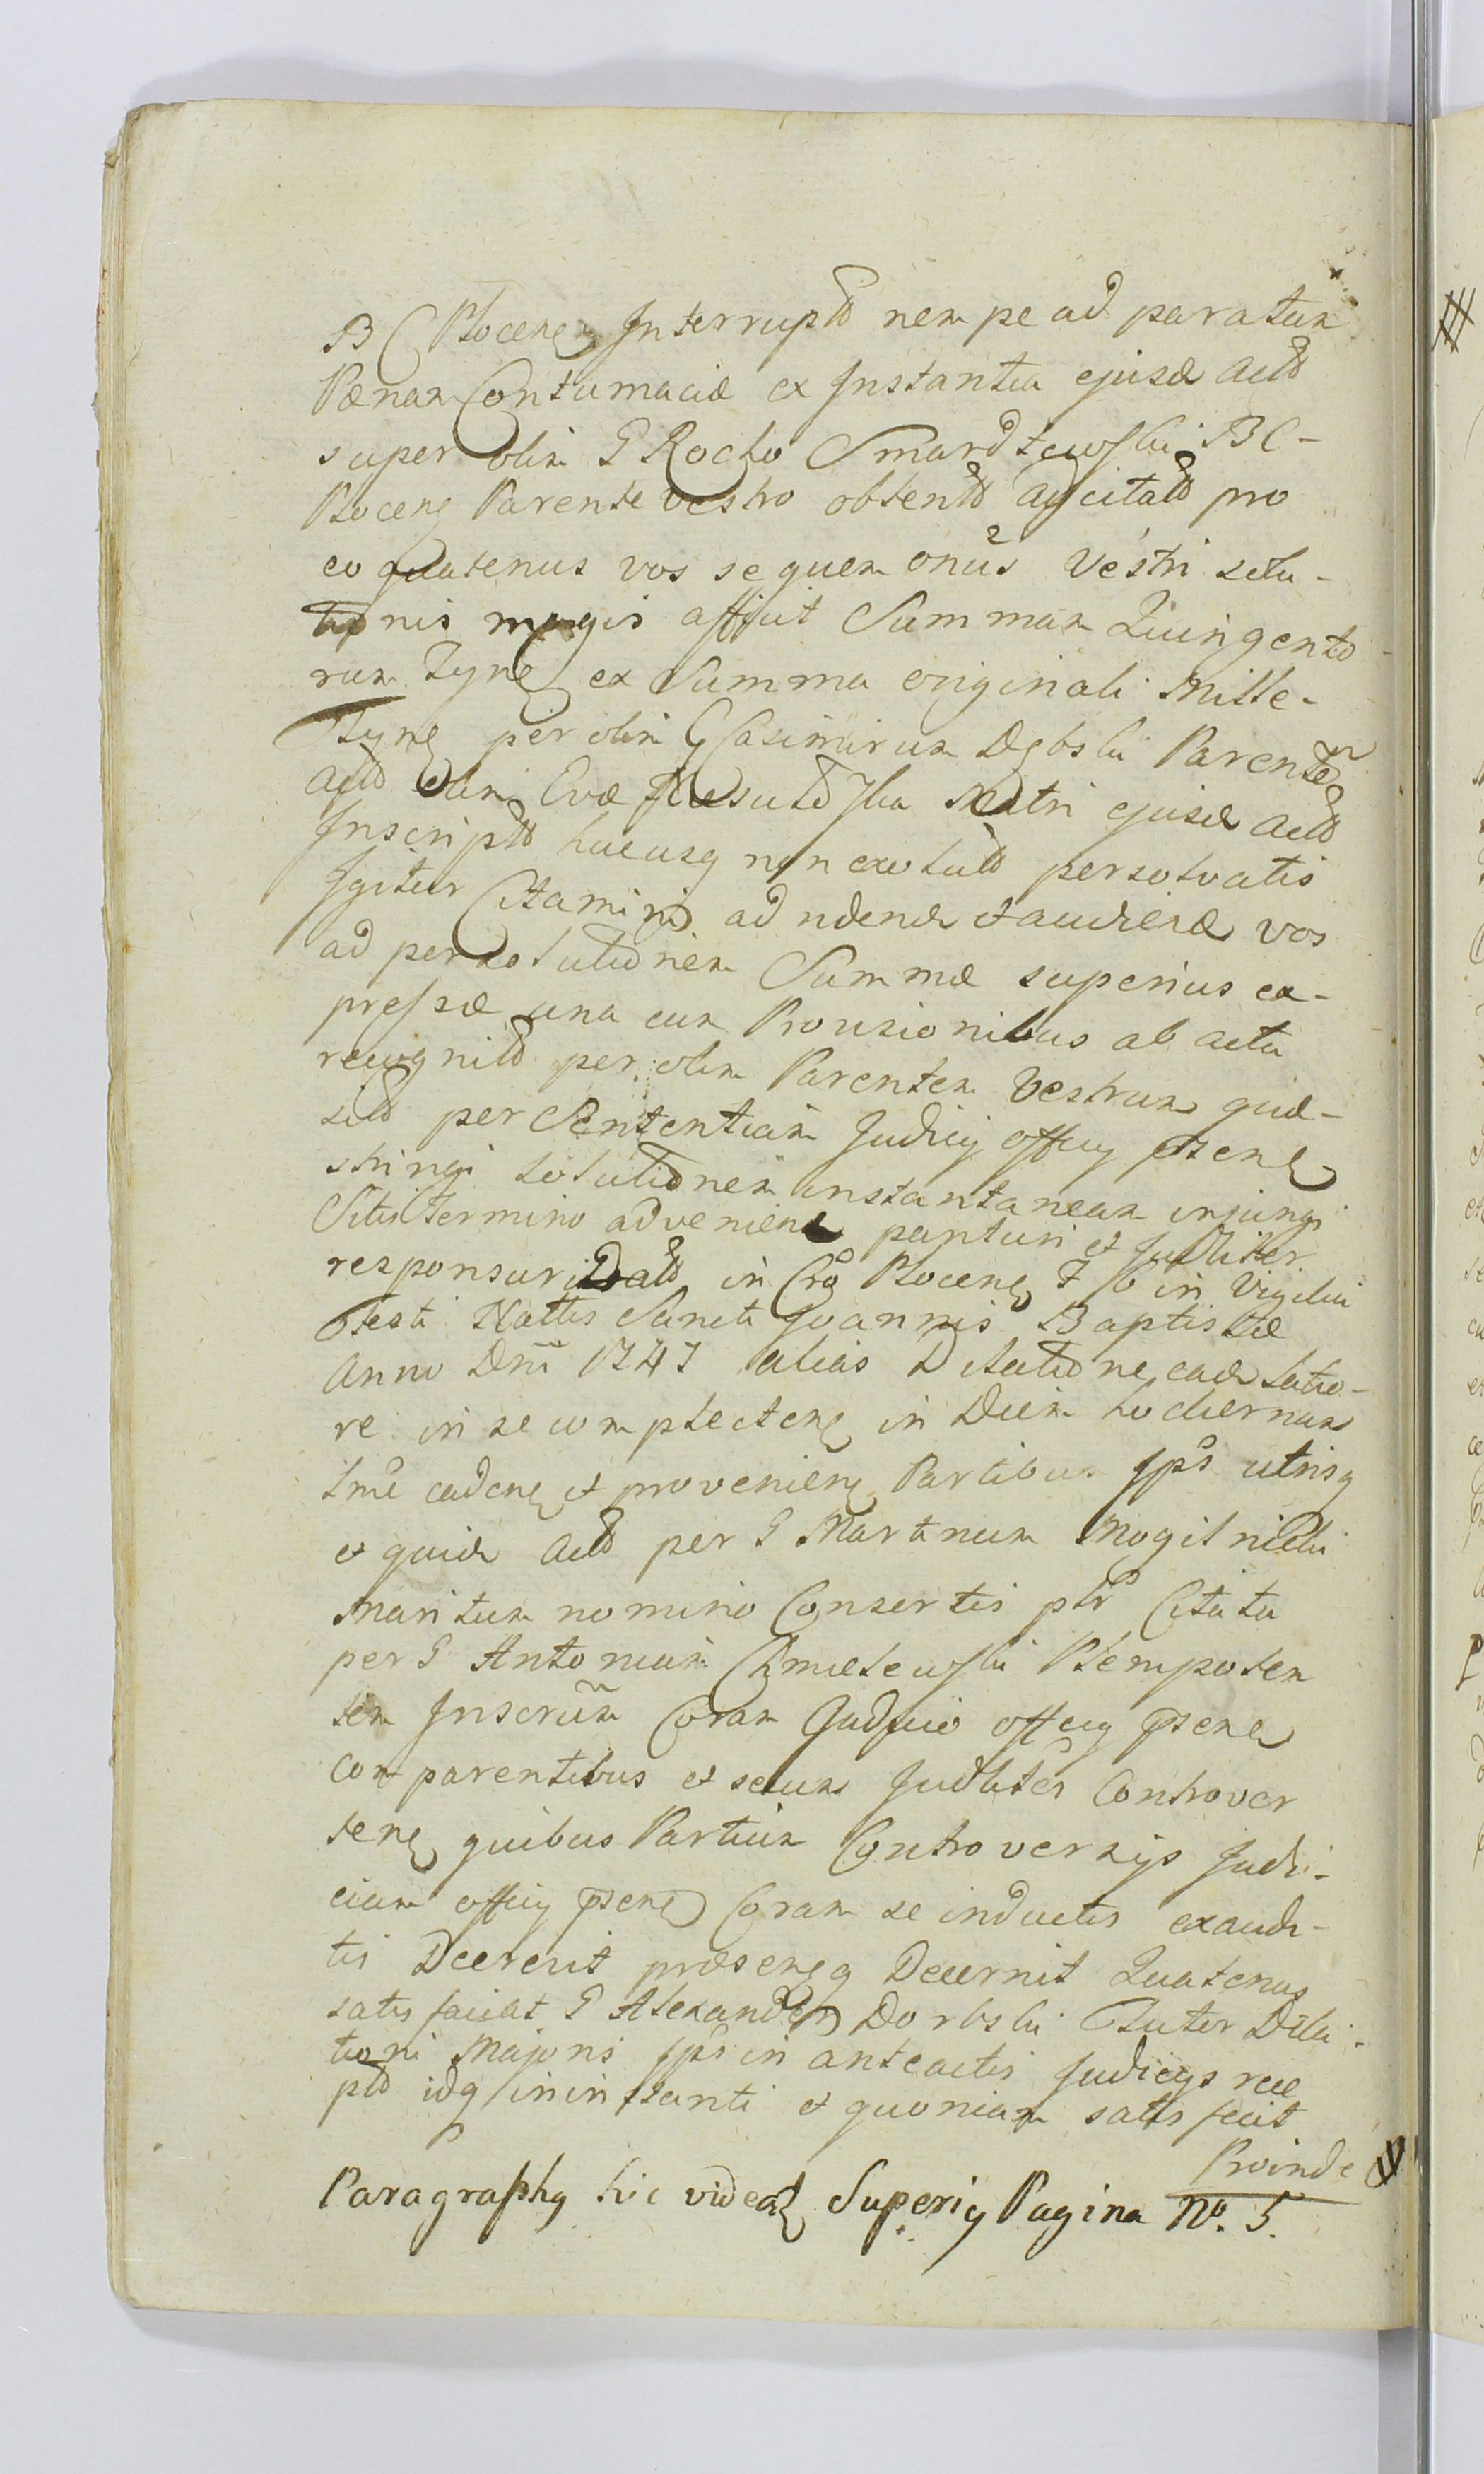 B C Plocen Interrupto nempe ad paratam
Pœnam Contumaciæ ex Instantia ejusd acto
super olim G Rocho Smardzewski B C -
Plocen Parente vestro obtento ac citato pro
eo quatenus vos se quem onus Vestri solu -
tionis magis afficit Summam Quingento -
rum Tynf ex Summa originali Mille -
Tynf per olim G Casimirum Dębski Parentem
acto olim Evæ Matri ejusd acto
Inscripto hucusq non exoluto persolvatis
Igitur Citamini ad videnđ et audienđ vos
ad persolutionem Summæ superius ex -
pressæ una cum Provisionibus ab actu
recognito per olim Parentem Vestrum quæ -
sito per Sententiam Judicij officij psen
stringi solutionem instantaneam injungi
Sitis termino advenien parituri et Judliter
responsuri Dato in Cro Plocen F 6 in Vigilia
Festi Natlis Sancti Joannis Baptistæ
Anno Dni 1747 alias Dilatione eađ latio -
re in se complecten in Diem hodiernum
lme caden et provenien Partibus Ips utrisq
et quidem acto per G Martinum Mogilnicki
Maritum nomino Consortis ptr Citata
per G Antonium Chmielewski Plenipoten
tem Inscrum Coram Judicio officij psen
comparentibus et secum Judliter Controver
ten quibus Partium Controversijs Judi -
cium officij psen Coram se inductis exaudi -
tis Decrevit præsenq Decernit Quatenus
satisfaciat G Alexander Dorbski Tutor Dila -
tioni Majoris Ips in anteactis Judicijs rece
pto idq in instanti et quoniam satisfecit
Proinde
Paragraphq hic videatr Superiq Pagina No. 5.